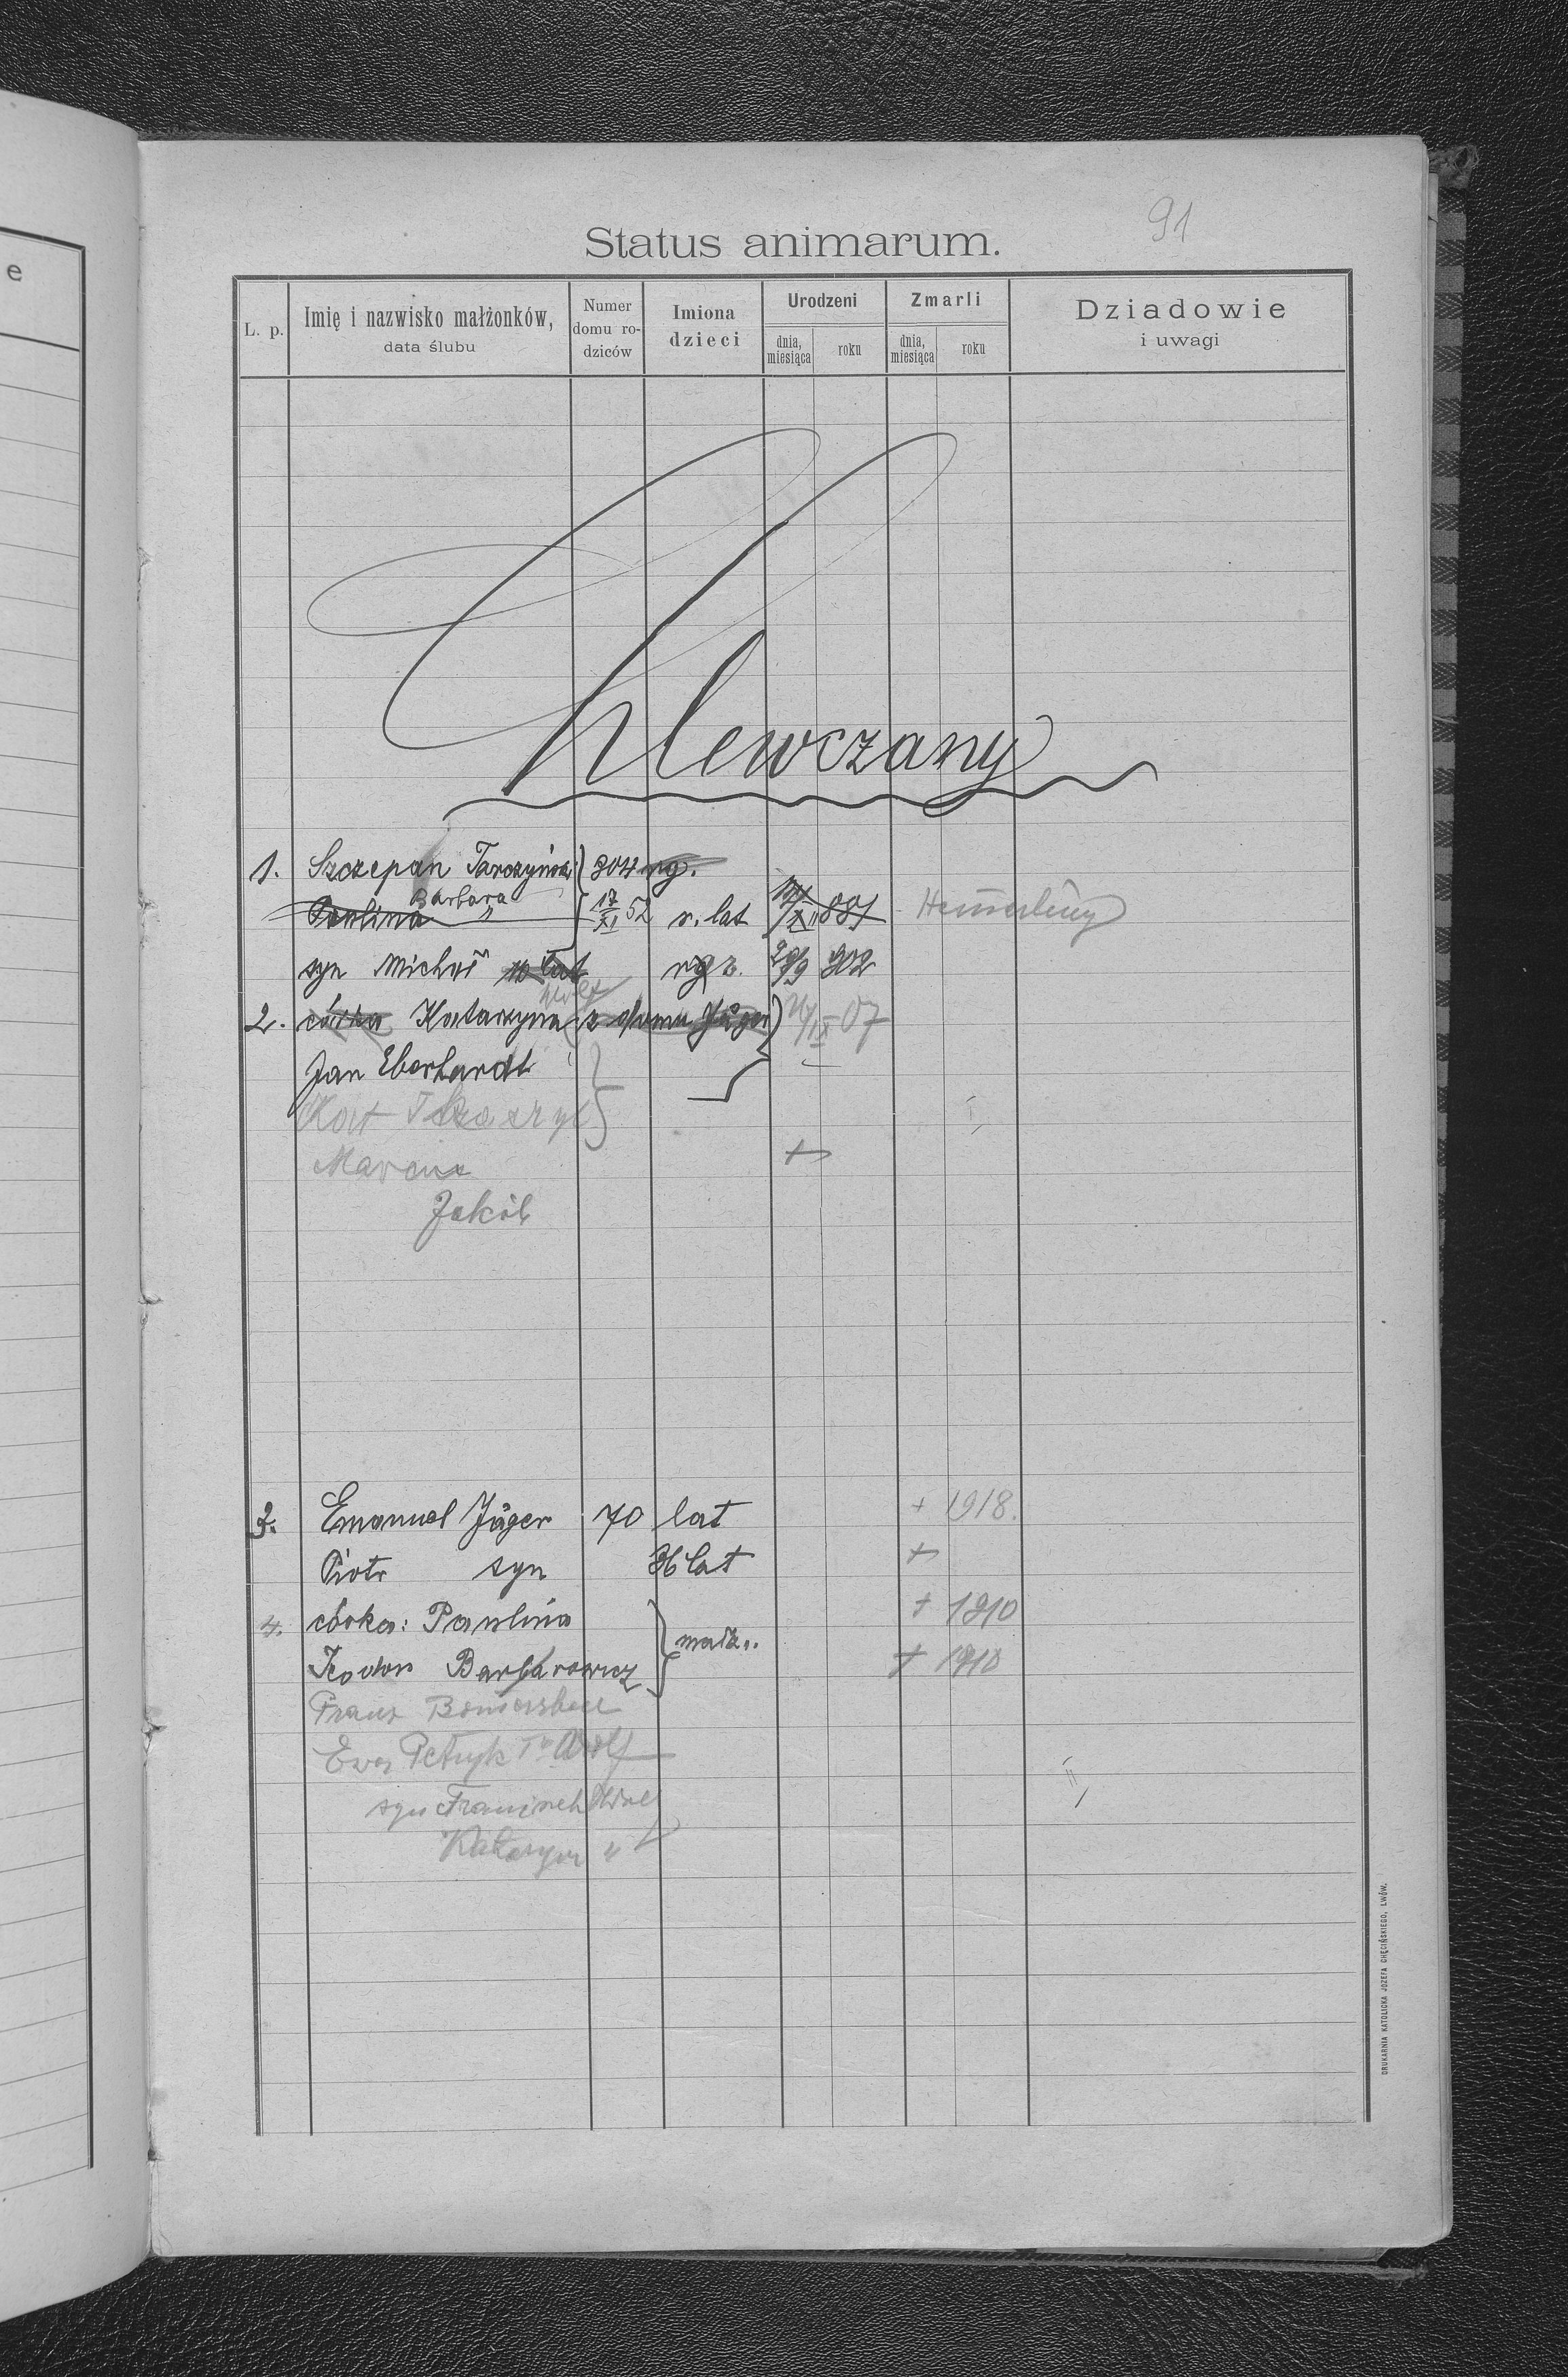 e
91
Status animarum.
L. p. Imię i nazwisko małżonków, data ślubu Numer domu ro- dziców Imiona dzieci Urodzeni dnia, miesiąca roku Zmarli dnia, miesiąca roku Dziadowie i uwagi
Chlewczany
1. Szczepan Tarczyński 304 rg.
Barbara
Paulina " 17/XI 52 r. lat 887
syn Michaś 10 lat rg r. 9 902
2. córka Katarzyna z domu Jäger IX 07
Jan Eberhardt
Kat
Jakób
3. Emanuel Jäger 70 lat + 1918.
Piotr syn 36 lat +
4. córka: Paulina + 1910
Teodor Barbarowicz małż. + 1910
Franz
Ewa Petryk Wolf
syn
Katarzyna "
DRUKARNIA KATOLICKA JOZEFA CHĘCIŃSKIEGO, LWÓW.